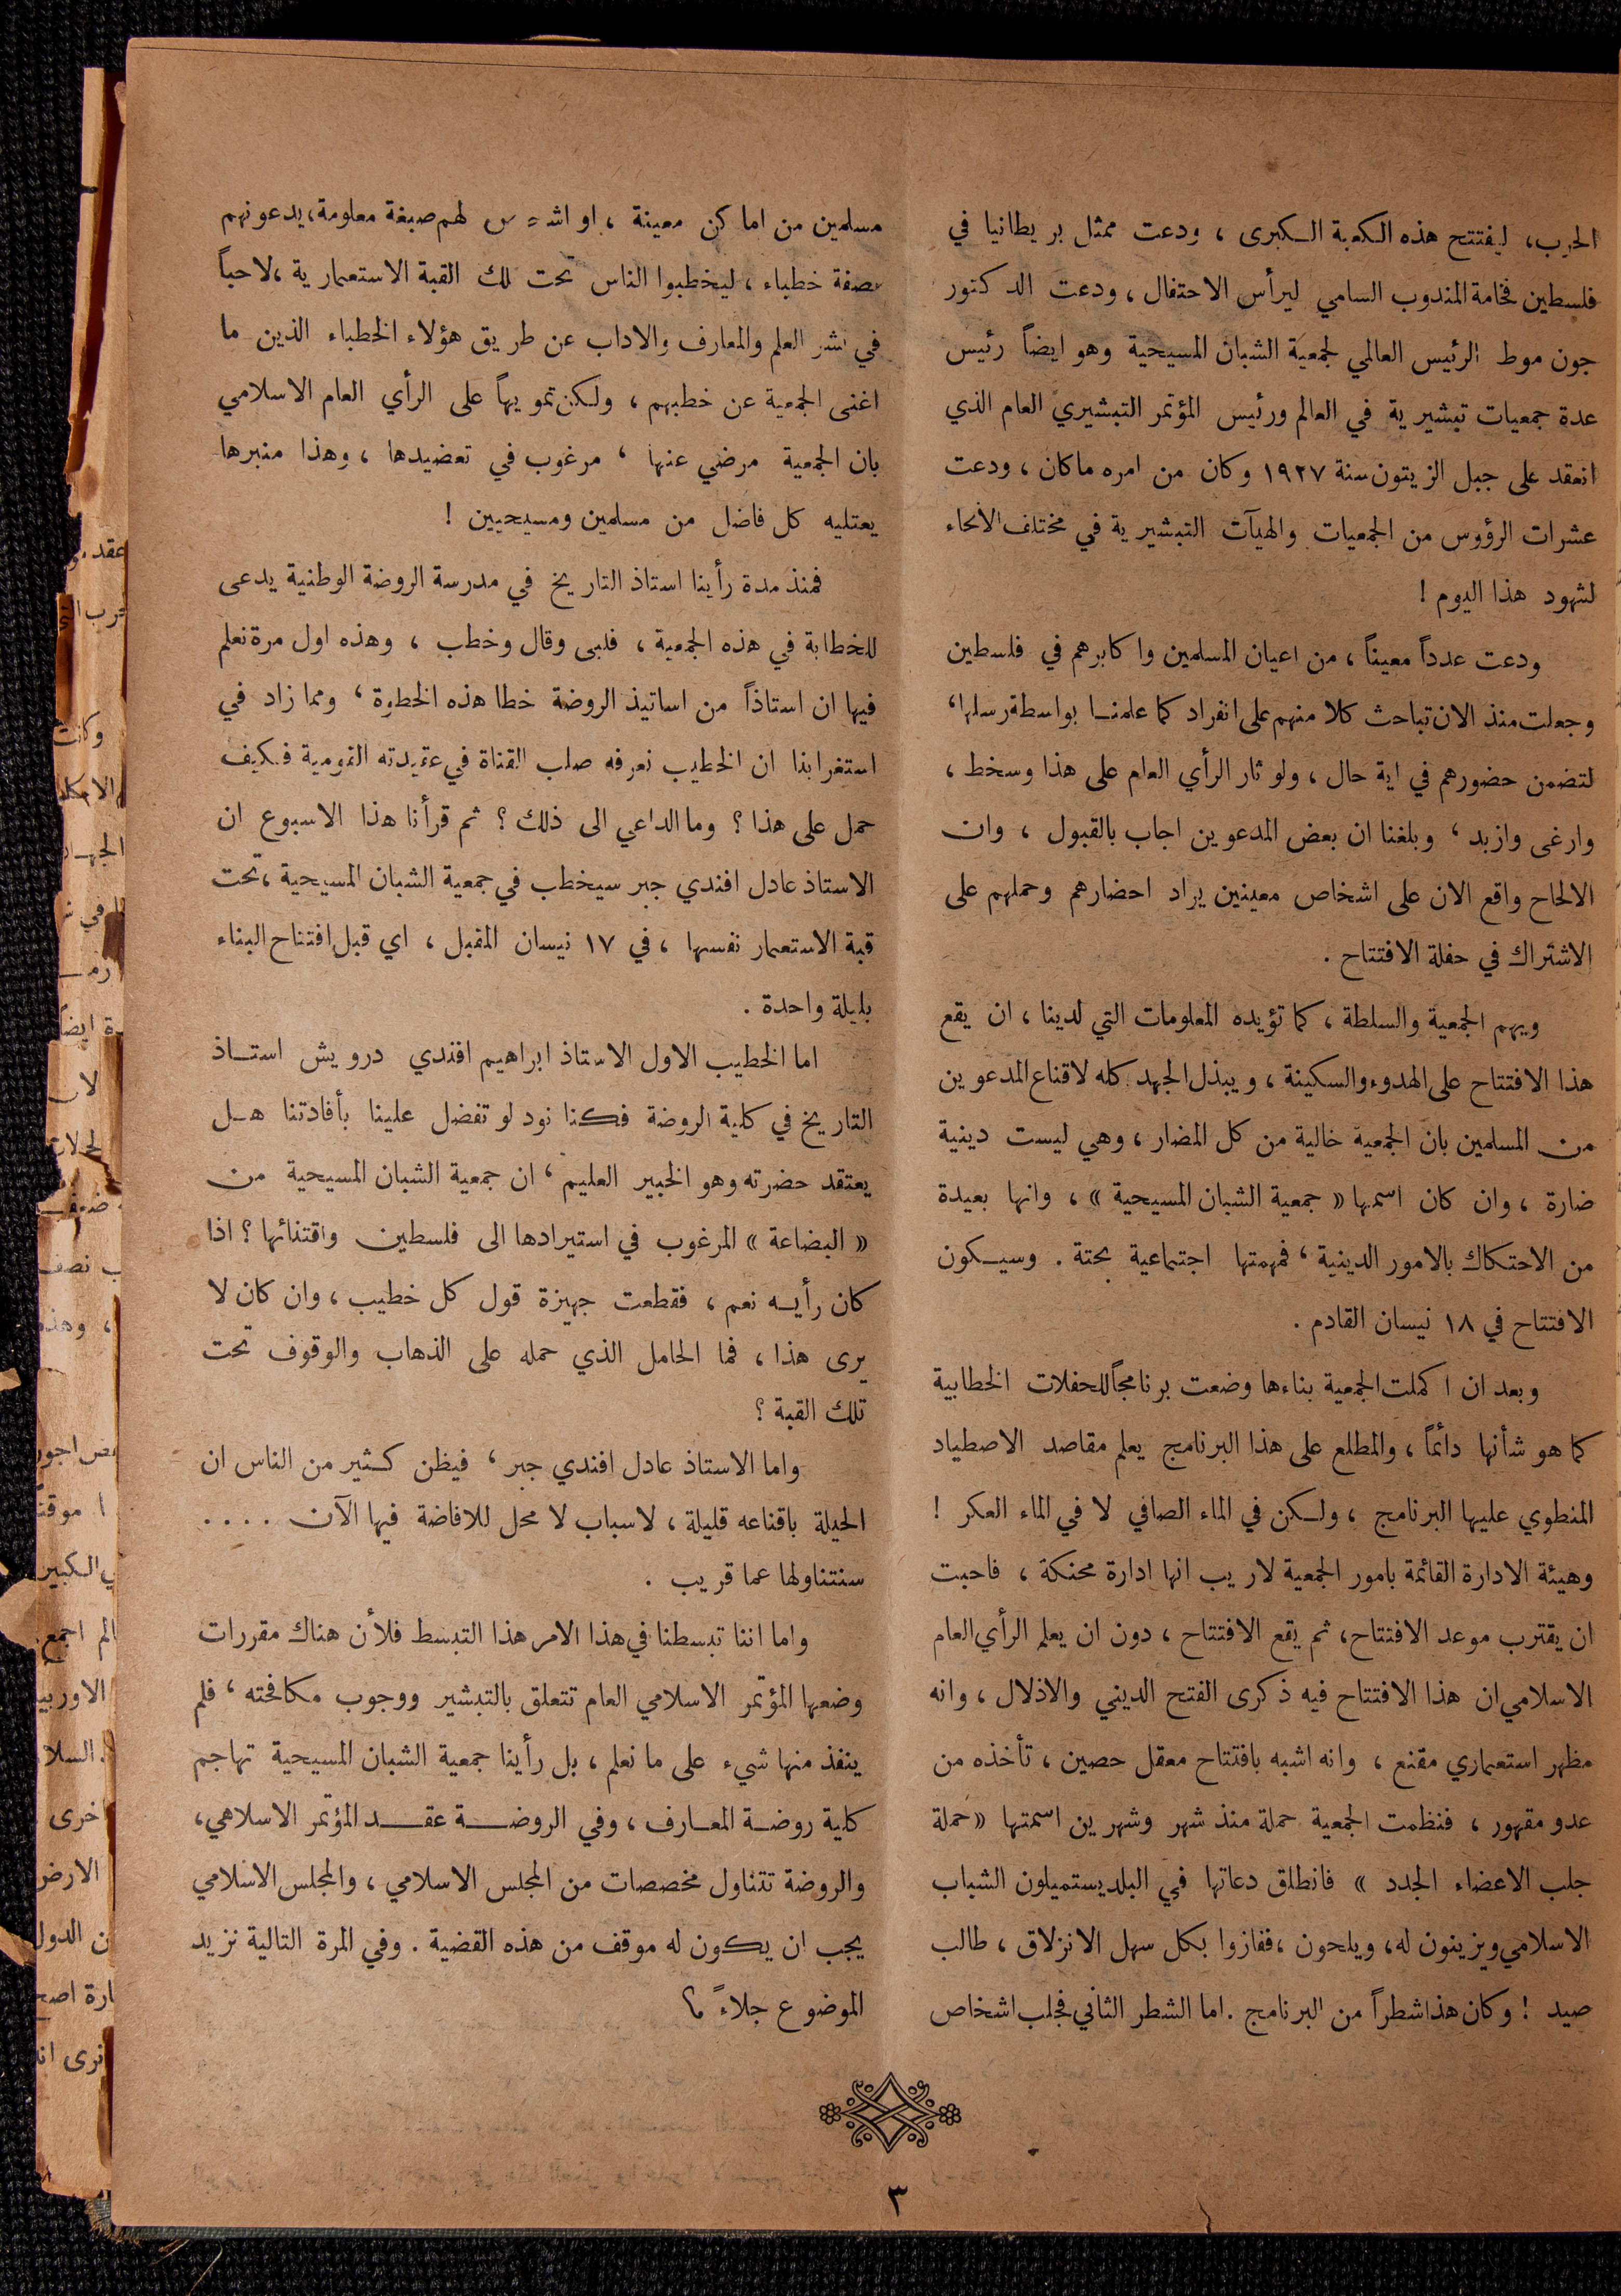 الحرب، ليفتتح هذه الكعبة الكبرى ، ودعت ممثل بريطانيا في
فلسطين فخامة المندوب السامي ليرأس الاحتفال ، ودعت الدكتور
جون موط الرئيس العالمي لجمعية الشبان المسيحية وهو ايضاً رئيس
عدة جمعيات تبشيرية في العالم ورئيس المؤتمر التبشيري العام الذي
انعقد على جبل الزيتون سنة ١٩٢٧ وكان من امره ماكان ، ودعت
عشرات الرؤوس من الجمعيات والهيآت التبشيرية في مختلف الانحاء
لشهود هذا اليوم !
ودعت عدداً معيناً ، من اعيان المسلمين واكابرهم في فلسطين
وجعلت منذ الان تباحث كلا منهم على انفراد كما علمنا بواسطة رسلها ،
لتضمن حضورهم في اية حال ، ولو ثار الرأي العام على هذا وسخط ،
وارغى وازبد ، وبلغنا ان بعض المدعوين اجاب بالقبول ، وان
الالحاح واقع الان على اشخاص معينين يراد احضارهم وحملهم على
الاشتراك في حفلة الافتتاح .
ويهم الجمعية والسلطة ، كما تؤيده المعلومات التي لدينا ، ان يقع
هذا الافتتاح على الهدوء والسكينة ، ويبذل الجهد كله لاقناع المدعوين
من المسلمين بان الجمعية خالية من كل المضار ، وهي ليست دينية
ضارة ، وان كان اسمها « جمعية الشبان المسيحية » ، وانها بعيدة
من الاحتكاك بالامور الدينية ، فمهمتها اجتماعية بحتة . وسيكون
الافتتاح في ١٨ نيسان القادم .
وبعد ان اكملت الجمعية بناءها وضعت برنامجاً للحفلات الخطابية
كما هو شأنها دائماً ، والمطلع على هذا البرنامج يعلم مقاصد الاصطياد
المنطوي عليها البرنامج ، ولكن في الماء الصافي لا في الماء العكر !
وهيئة الادارة القائمة بامور الجمعية لاريب انها ادارة محنكة ، فاحبت
ان يقترب موعد الافتتاح ، ثم يقع الافتتاح ، دون ان يعلم الرأي العام
الاسلامي ان هذا الافتتاح فيه ذكرى الفتح الديني والاذلال ، وانه
مظهر استعماري مقنع ، وانه اشبه بافتتاح معقل حصين ، تأخذه من
عدو مقهور ، فنظمت الجمعية حملة منذ شهر وشهرين اسمتها « حملة
جلب الاعضاء الجدد » فانطلق دعاتها في البلد يستميلون الشباب
الاسلامي ويزينون له ، ويلحون ، ففازوا بكل سهل الانزلاق ، طالب
صيد ! وكان هذا شطراً من البرنامج . اما الشطر الثاني فجلب اشخاص
مسلمين من اماكن معينة ، او لهم صبغة معلومة ، يدعونهم
بصفة خطباء ، ليخطبوا الناس تحت تلك القبة الاستعمارية ، لا حباً
في نشر العلم والمعارف والاداب عن طريق هؤلاء الخطباء الذين ما
اغنى الجمعية عن خطبهم ، ولكن تمويهاً على الرأي العام الاسلامي
بان الجمعية مرضي عنها ، مرغوب في تعضيدها ، وهذا منبرها
يعتليه كل فاضل من مسلمين ومسيحيين !
فمنذ مدة رأينا استاذ التاريخ في مدرسة الروضة الوطنية يدعى
للخطابة في هذه الجمعية ، فلبى وقال وخطب ، وهذه اول مرة نعلم
فيها ان استاذاً من اساتيذ الروضة خطا هذه الخطوة ، ومما زاد في
استغرابنا ان الخطيب نعرفه صلب القناة في عقيدته القومية فكيف
حمل على هذا ؟ وما الداعي الى ذلك ؟ ثم قرأنا هذا الاسبوع ان
الاستاذ عادل افندي جبر سيخطب في جمعية الشبان المسيحية ، تحت
قبة الاستعمار نفسها ، في ١٧ نيسان المقبل ، اي قبل افتتاح البناء
بليلة واحدة .
اما الخطيب الاول الاستاذ ابراهيم افندي درويش استاذ
التاريخ في كلية الروضة فكنا نود لو تفضل علينا بأفادتنا هل
يعتقد حضرته وهو الخبير العليم ، ان جمعية الشبان المسيحية من
« البضاعة » المرغوب في استيرادها الى فلسطين واقتنائها ؟ اذا
كان رأيه نعم ، فقطعت جهيزة قول كل خطيب ، وان كان لا
يرى هذا ، فما الحامل الذي حمله على الذهاب والوقوف تحت
تلك القبة ؟
واما الاستاذ عادل افندي جبر ، فيظن كثير من الناس ان
الحيلة باقناعه قليلة ، لاسباب لا محل للافاضة فيها الآن ....
سنتناولها عما قريب .
واما اننا تبسطنا في هذا الامر هذا التبسط فلأن هناك مقررات
وضعها المؤتمر الاسلامي العام تتعلق بالتبشير ووجوب مكافحته ، فلم
ينفذ منها شيء على ما نعلم ، بل رأينا جمعية الشبان المسيحية تهاجم
كلية روضة المعارف ، وفي الروضة عقد المؤتمر الاسلامي ،
والروضة تتناول مخصصات من المجلس الاسلامي ، والمجلس الاسلامي
يجب ان يكون له موقف من هذه القضية . وفي المرة التالية نزيد
الموضوع جلاءً
٣